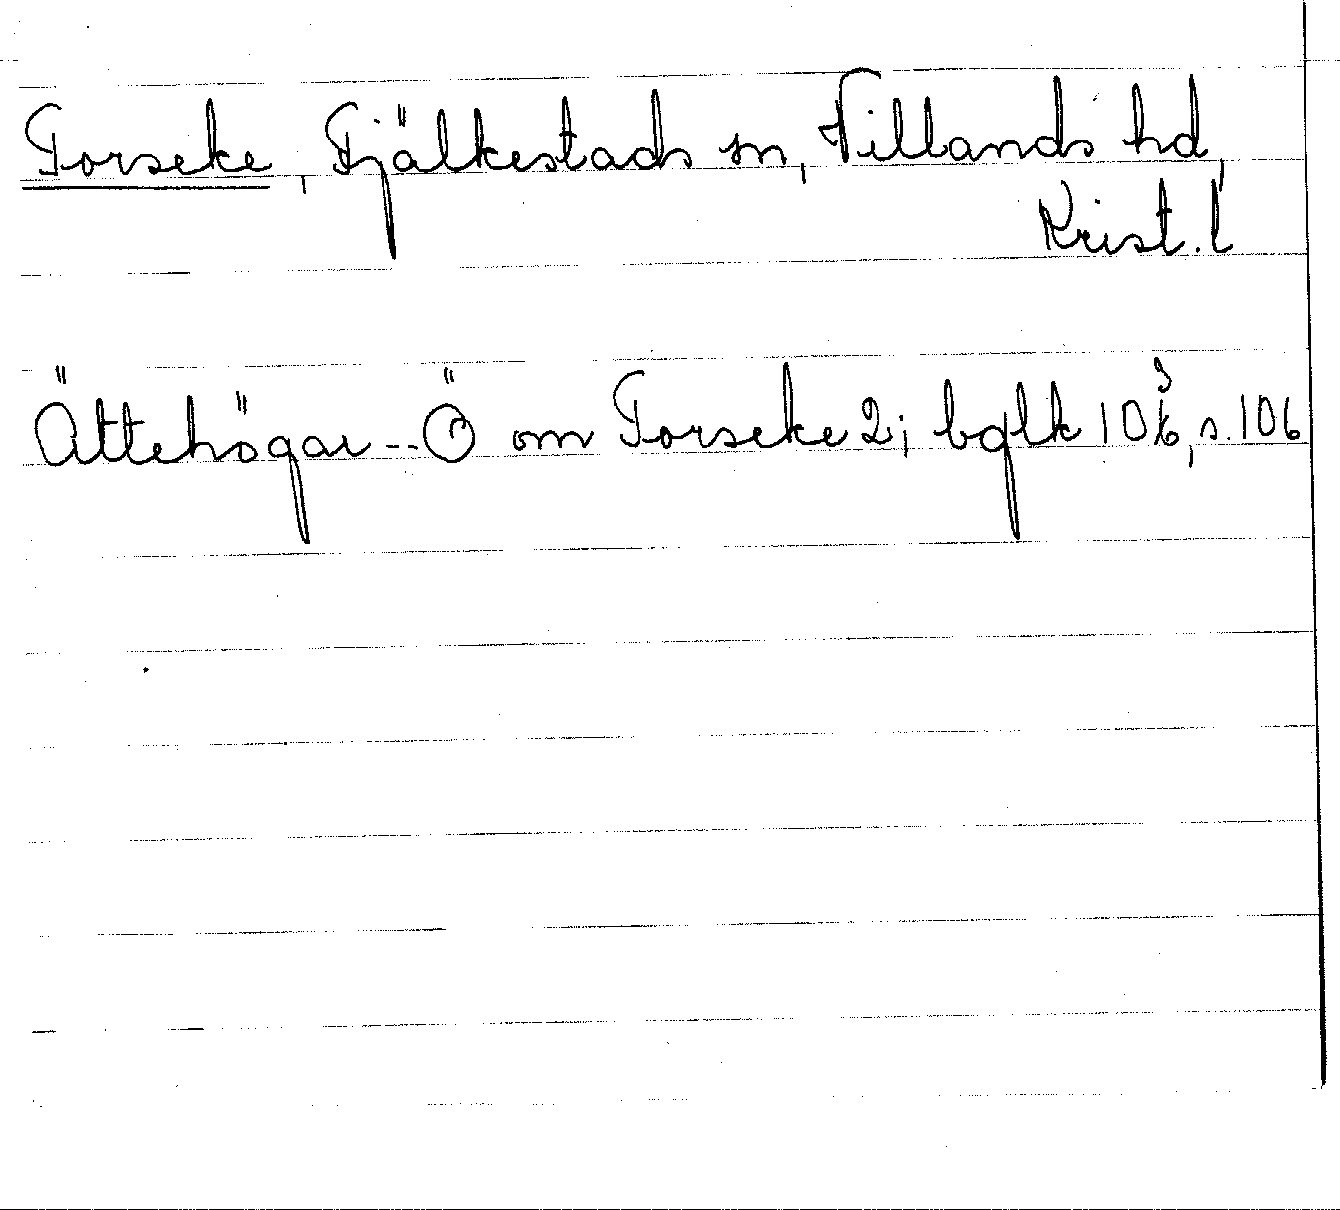 Torseke, Fjälkestads sn, Villands hd,
Krist. l
Ättehögar -- Ö om Torseke 2; bglk 10, s. 106